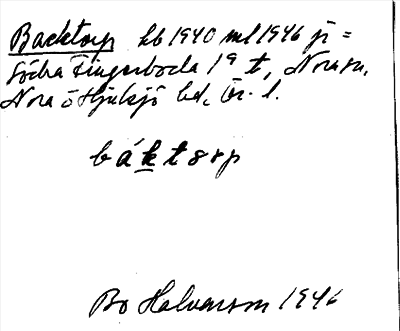 Backtorp kb 1940 ml 1946 ji =
Södra Fingerboda 1⁹ t, Nora sn,
Nora o Hjulsjö bd, Ör. l.
báktorp
Bo Halvarson 1946